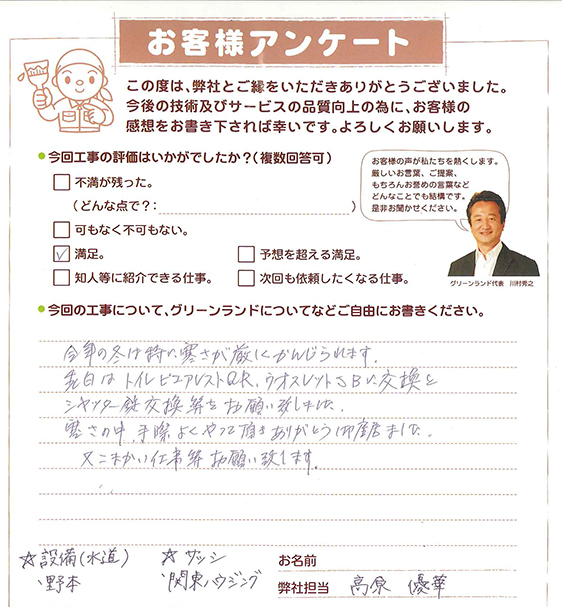 お客様アンケート
この度は、弊社とご縁をいただきありがとうございました。
今後の技術及びサービスの品質向上の為に、お客様の
感想をお書き下されば幸いです。よろしくお願いします。
●今回工事の評価はいかがでしたか？(複数回答可)
□不満が残った。
(どんな点で？: )
□可もなく不可もない。
☑満足。
□予想を超える満足。
□知人等に紹介できる仕事。
□次回も依頼したくなる仕事。
お客様の声が私たちを熱くします。
厳しいお言葉、ご提案、
もちろんお誉めの言葉など
どんなことでも結構です。
是非お聞かせください。
グリーンランド代表 川村秀之
●今回の工事について、グリーンランドについてなどご自由にお書きください。
今年の冬は特に寒さが厳しくかんじられます。
はトイレピュアレストQR、ウオスレットSBに交換と
シャッター錠交換等をお願い致しました。
寒さの中、手際よくやって頂きありがとう御座居ました。
又こまかい仕事等お願い致します。
☆設備(水道)
、野本
☆サッシ
、関東ハウジング
お名前
弊社担当 高原 優華